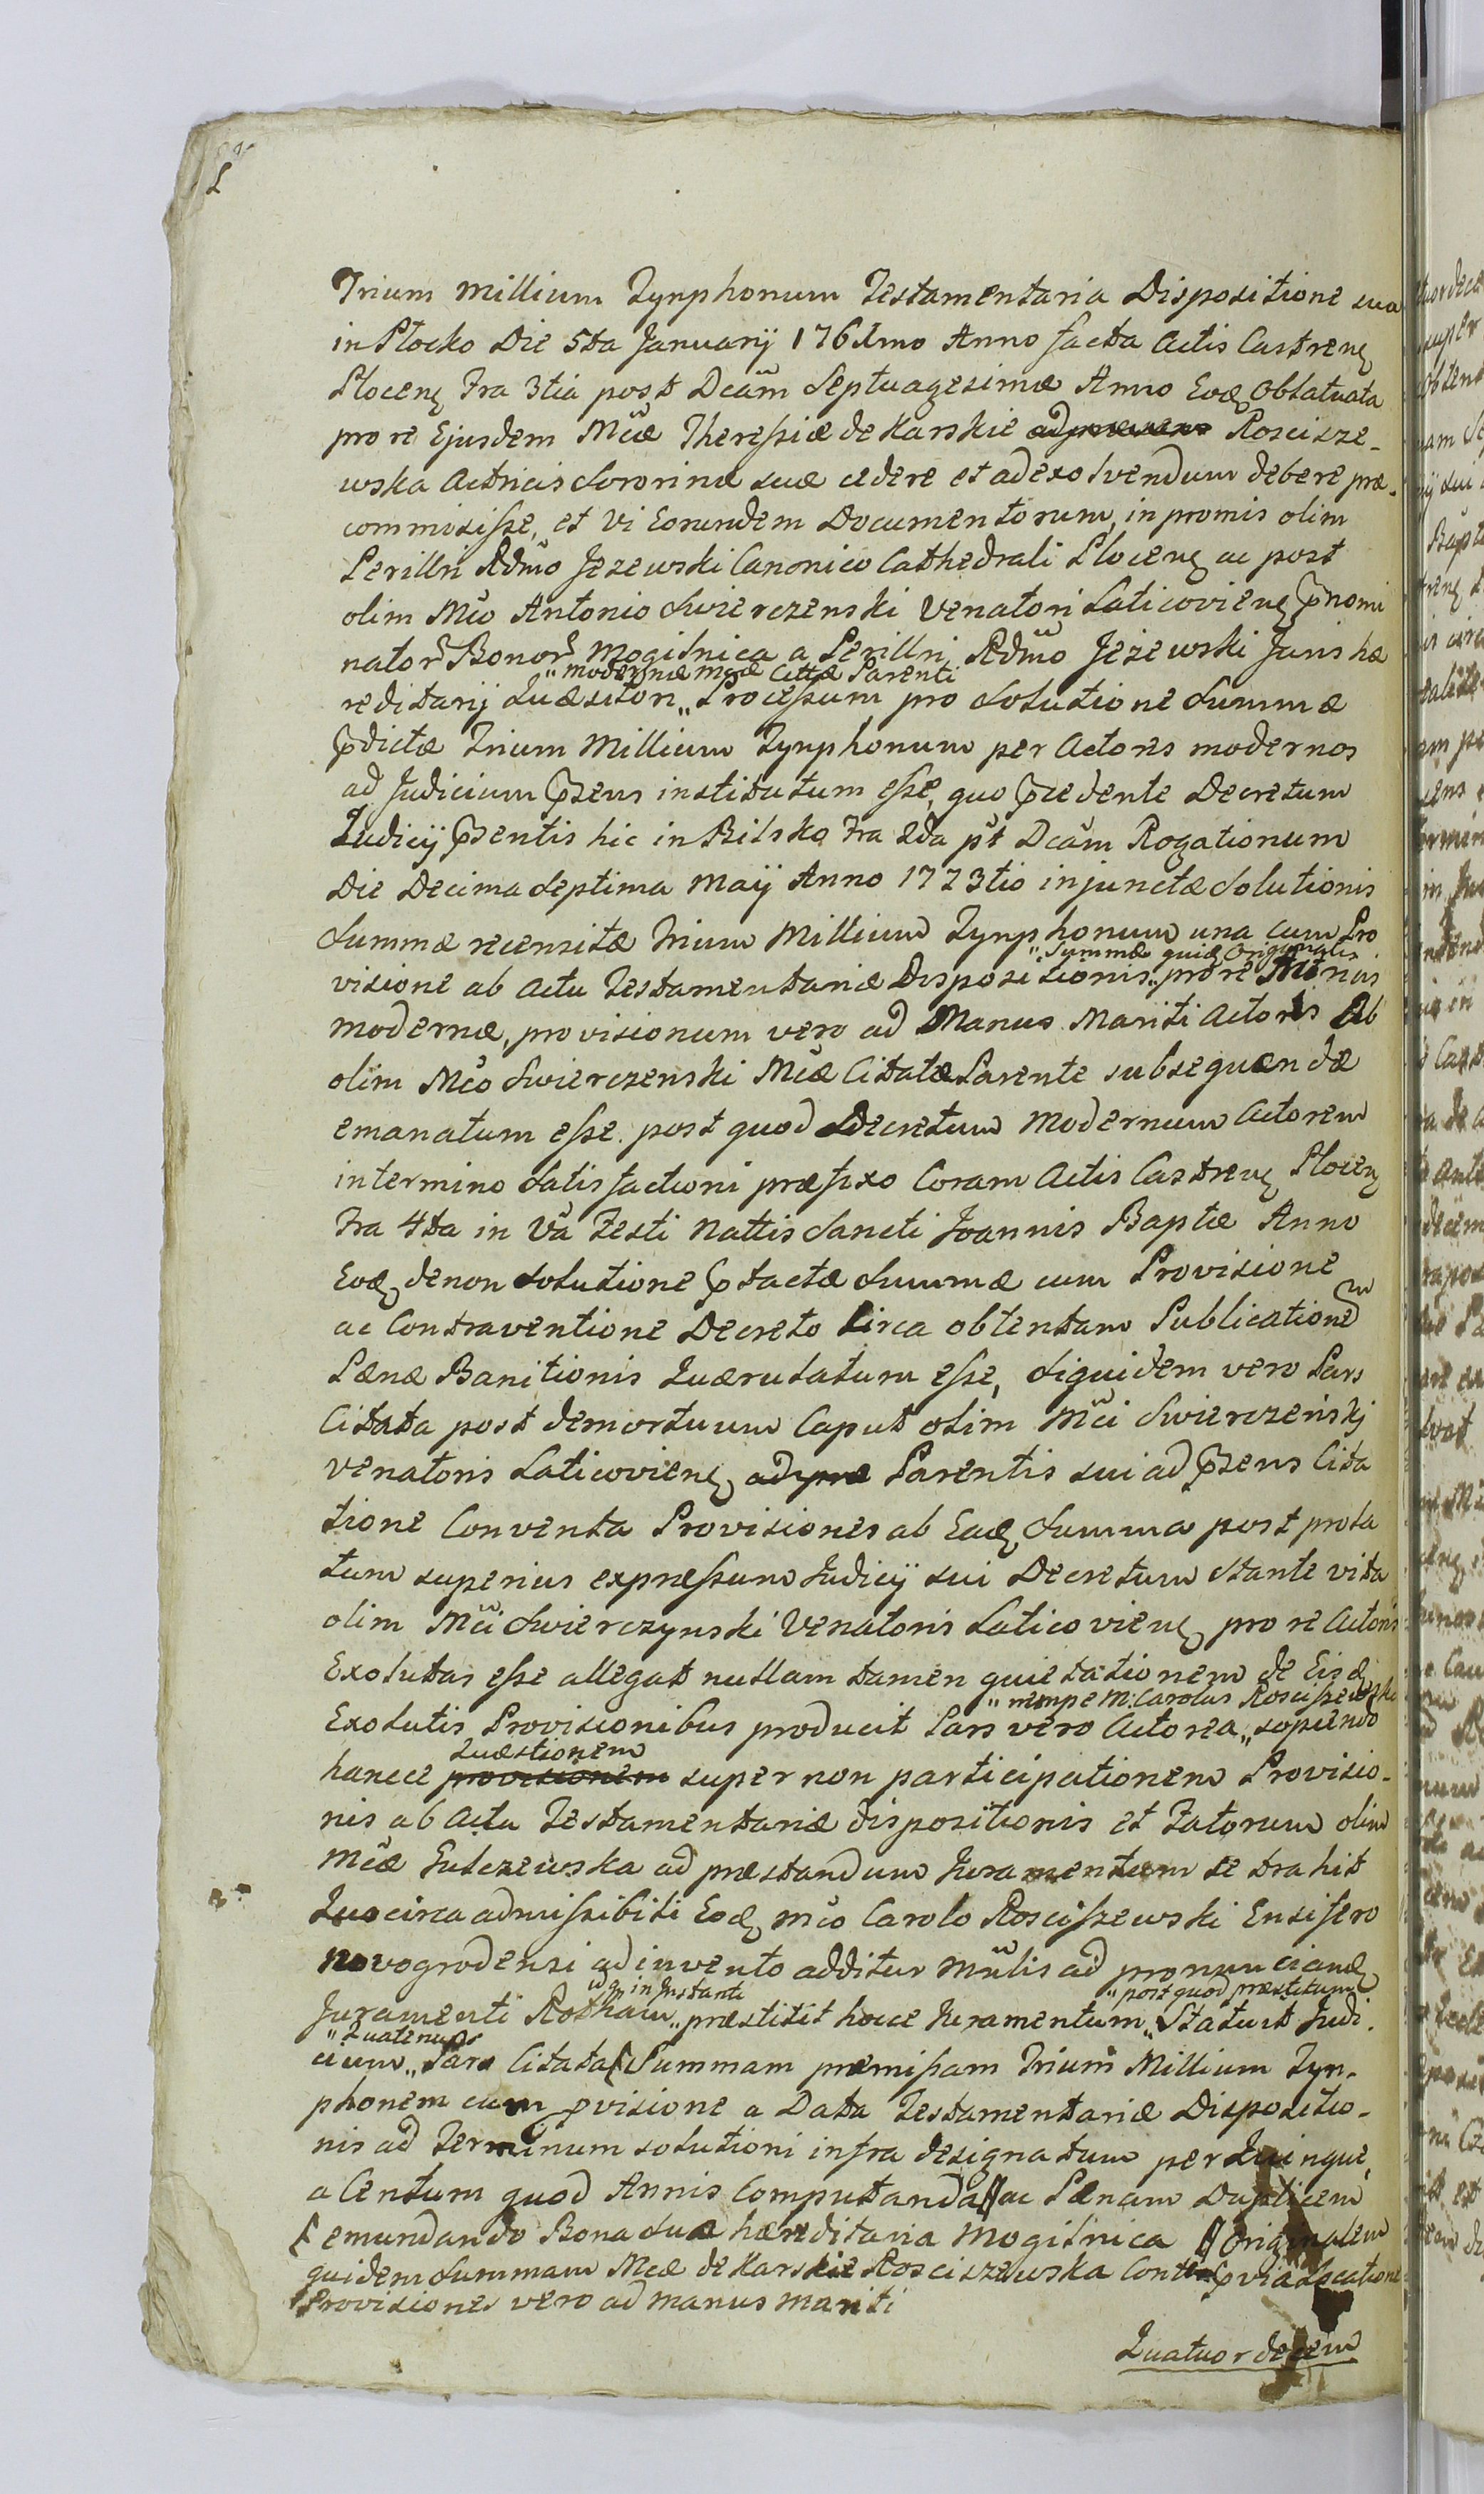 Trium Millium Tynphonum Testamentaria Dispositione sua
in Płocko Die 5ta Januarij 176 Imo Anno facta Actis Castren
Plocen Fra 3tia post Dcam Septuagesimæ Anno Eod Oblatuata
pro re Ejusdem Mcæ Theressiæ de Karskie Roscisze-
wska Actricis Sororinæ suæ cedere et ad exolvendum debere præ-
commisisse, et vi Eorundem Documentorum, in promis olim
Perilln Rdmo Jezewski Canonico Cathedrali Plocen ac post
olim Mco Antonio Swierczenski Venatori Laticovien pnomi
nator Bonor Mogilnica a Perilln Rdmo Jeżewski Juris hæ
"modernæ Mcæ Cittæ Parenti
reditarij Quæsitori " Processum pro Solutione Summæ
pdictæ Trium Millium Tynphonum per Actores modernos
ad Judicium psens institutum esse, quo pcedente Decretum
Judicij psentis hic in Bilsko Fra 2da pt Dcam Rogationum
Die Decima Septima Maij Anno 1773tio injunctæ Solutionis
Summæ recensitæ Trium Millium Tynphonum una cum Pro
"Summæ quidæ Originalis
visione ab actu Testamentariæ Dispositionis " pro re Actricis
modernæ, provisionum vero ad Manus Mariti Actoris Ab
olim Mco Swierczenski Mcæ Citatæ Parente subsequendæ
emanatum esse. post quod Decretum Modernum Actorem
in termino Satisfactioni præfixo Coram Actis Castren Plocen
Fra 4ta in Va Festi Nattis Sancti Joannis Baptæ Anno
Eod de non Solutione ptactæ Summæ cum Provisione
ac Contraventione Decreto Circa obtentam Publicationem
Pænæ Banitionis Quærulatum esse, Siquidem vero Pars
Citata post demortuum Caput olim Mci Swierczeńskj
Venatoris Laticovien ad præ Parentis sui ad psens Cita
tione Conventa Provisiones ab Ead Summa post prola
tum superius expressum Judicij sui Decretum Stante vita
olim Mci Swierczynski Venatoris Laticovien pro re Actoris
Exolutas esse allegat nullam tamen quietationem de Eisd
"nempe M: Carolus Roscissewski
Exolutis Provisionibus producit Pars vero Actorea " sopiendo
Quæstionem
hancce provisionem super non participationem Provisio-
nis ab Actu Testamentariæ dispositionis et Fatorum olim
Mcæ Gulczewska ad præstandum Juramentum se trahit
Quocirca admissibili Eod Mco Carolo Roscissewski Ensifero
Novogrodensi ad invento additur Mnlis ad pronunciand
id in Instanti "post quod præstitum
Juramenti Rotham " præstitit hocce Juramentum " Statuit Judi-
"Quatenus
cium " Pars Citata Summam præmissam Trium Millium Tyn-
phonem cum pvisione a Data Testamentariæ Dispositio-
nis ad Terminum solutioni infra designatum per Quinque,
a Centum quod Annis Computanda ac Pænam Duplicem
emundando Bona Sua hæreditaria Mogilnica Originalem
quidem Summam Mcæ de Karskie Rosciszewska pvia Locatione
Provisiones vero ad manus mariti
Quatuordecim